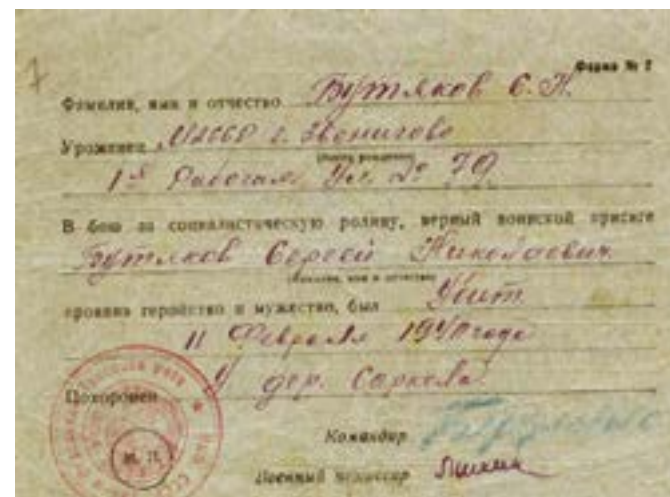 7
Форма № 2
Фамилия, имя и отчество Бутяков С. Н.
Уроженец МАССР г. Звенигово
(место рождения)
1я Рабочая Ул. № 79
В бою за социалистическую родину, верный воинской присяге
Бутяков Сергей Николаевич
(фамилия, имя и отчество)
проявив геройство и мужество, был Убит
11 Февраля 1940 года
Похоронен У дер. Саркела
М. П.
Командир
Военный комиссар